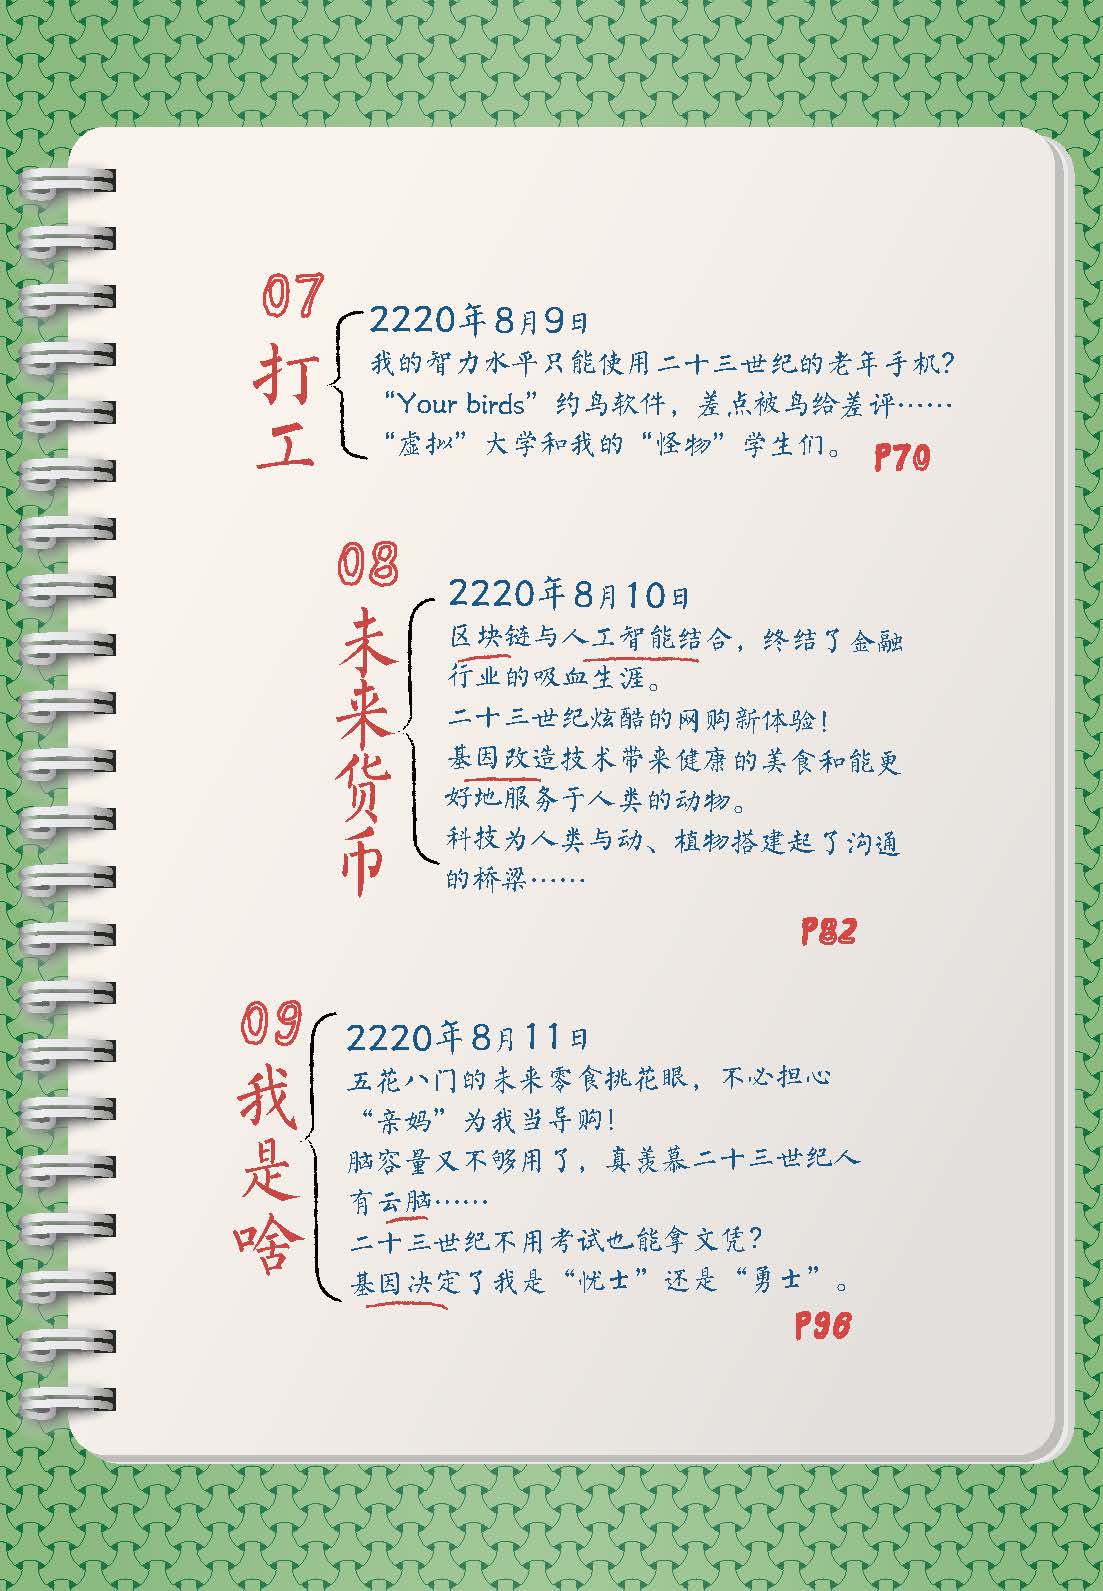 07
打工
2220年8月9日
我的智力水平只能使用二十三世纪的老年手机？
“Your birds”约鸟软件，差点被鸟给差评……
“虚拟”大学和我的“怪物”学生们。
P70
08
未来货币
2220年8月10日
区块链与人工智能结合，终结了金融
行业的吸血生涯。
二十三世纪炫酷的网购新体验！
基因改造技术带来健康的美食和能更
好地服务于人类的动物。
科技为人类与动、植物搭建起了沟通
的桥梁……
P82
09
我是啥
2220年8月11日
五花八门的未来零食挑花眼，不必担心
“亲妈”为我当导购！
脑容量又不够用了，真羡慕二十三世纪人
有云脑……
二十三世纪不用考试也能拿文凭？
基因决定了我是“忧士”还是“勇士”。
P96